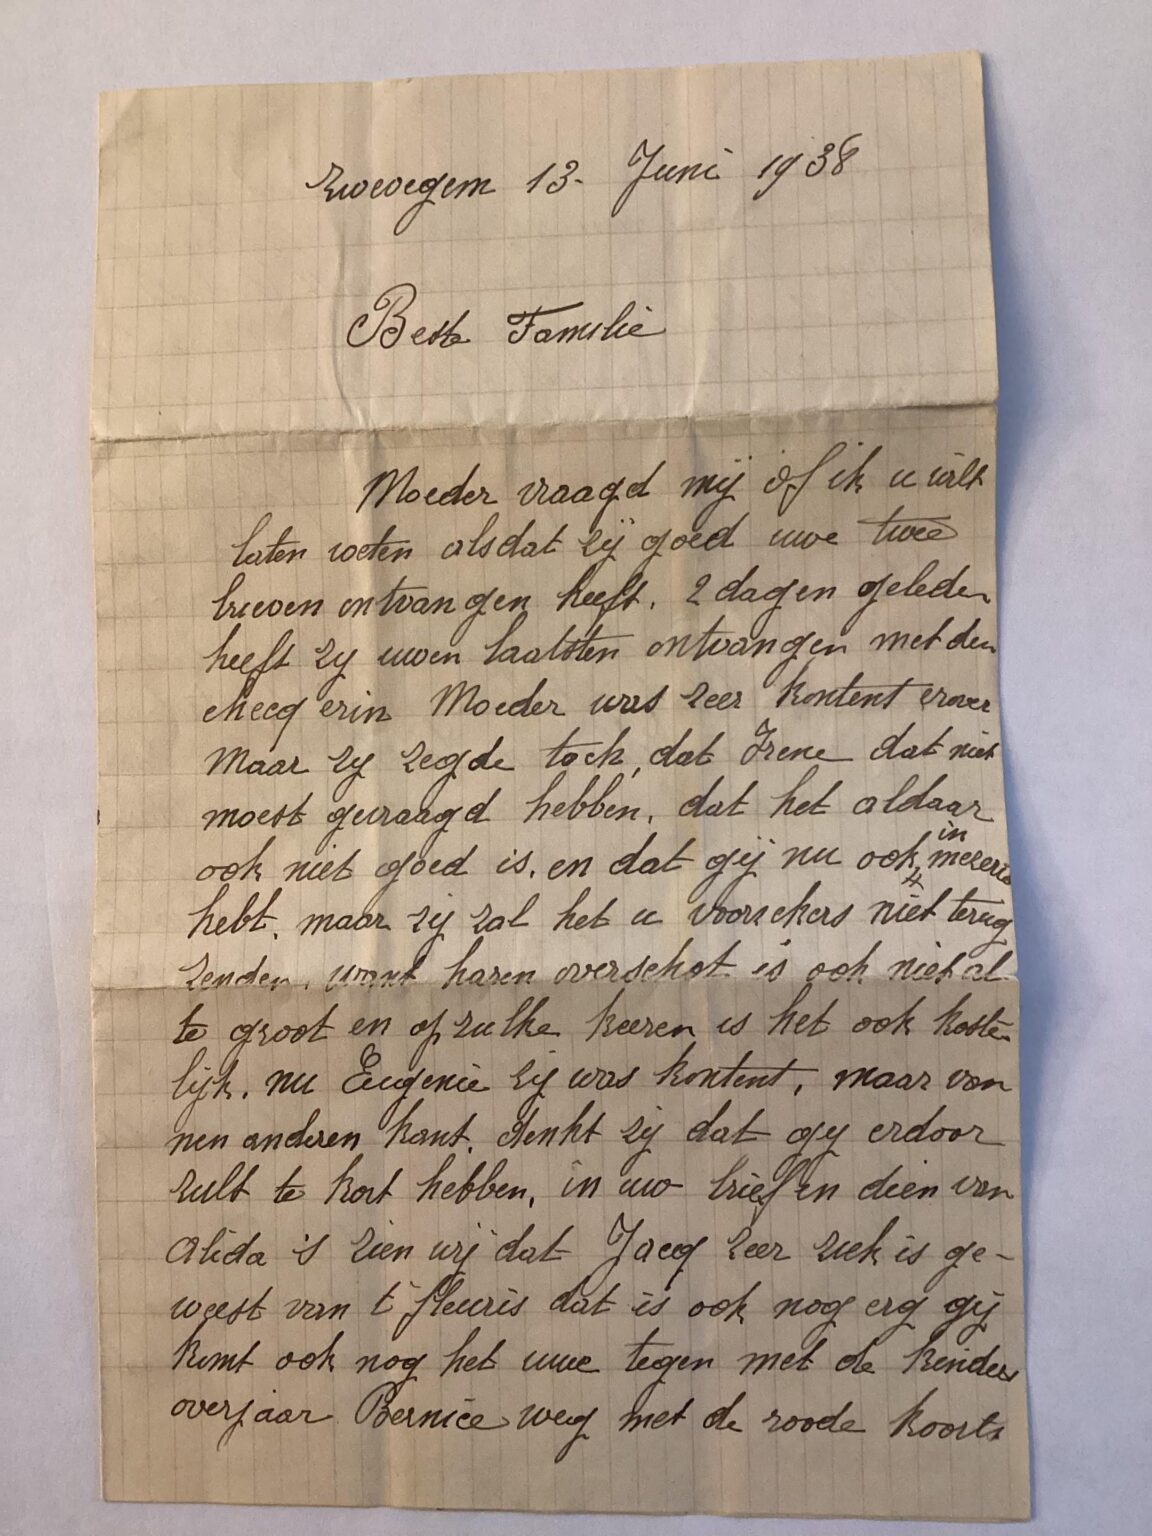 Zwevegem 13. Juni 1938
Beste Familie
Moeder vraagd mij of ik u wilt
laten weten alsdat zij goed uwe twee
brieven ontvangen heeft. 2 dagen geleden
heeft zij uwen laatsten ontvangen met den
checq erin Moeder was zeer kontent erover
maar zij zegde toch, dat Irene dat niet
moest gevraagd hebben, dat het aldaar
ook niet goed is. en dat gij nu ook in meserie
hebt. maar zij zal het u voorzekers niet terug
zenden, want haren overschot is ook niet al
te groot en op zulke keeren is het ook koste-
lijk. nu Eugenie zij was kontent, maar van
nen anderen kant. denkt zij dat gij erdoor
zult te kort hebben, in uw brief en dien van
Alida 's zien wij dat Jacq zeer ziek is ge-
weest van t' fleuris dat is ook nog erg gij
komt ook nog het uwe tegen met de kinders
overjaar Bernice weg met de roode koorts